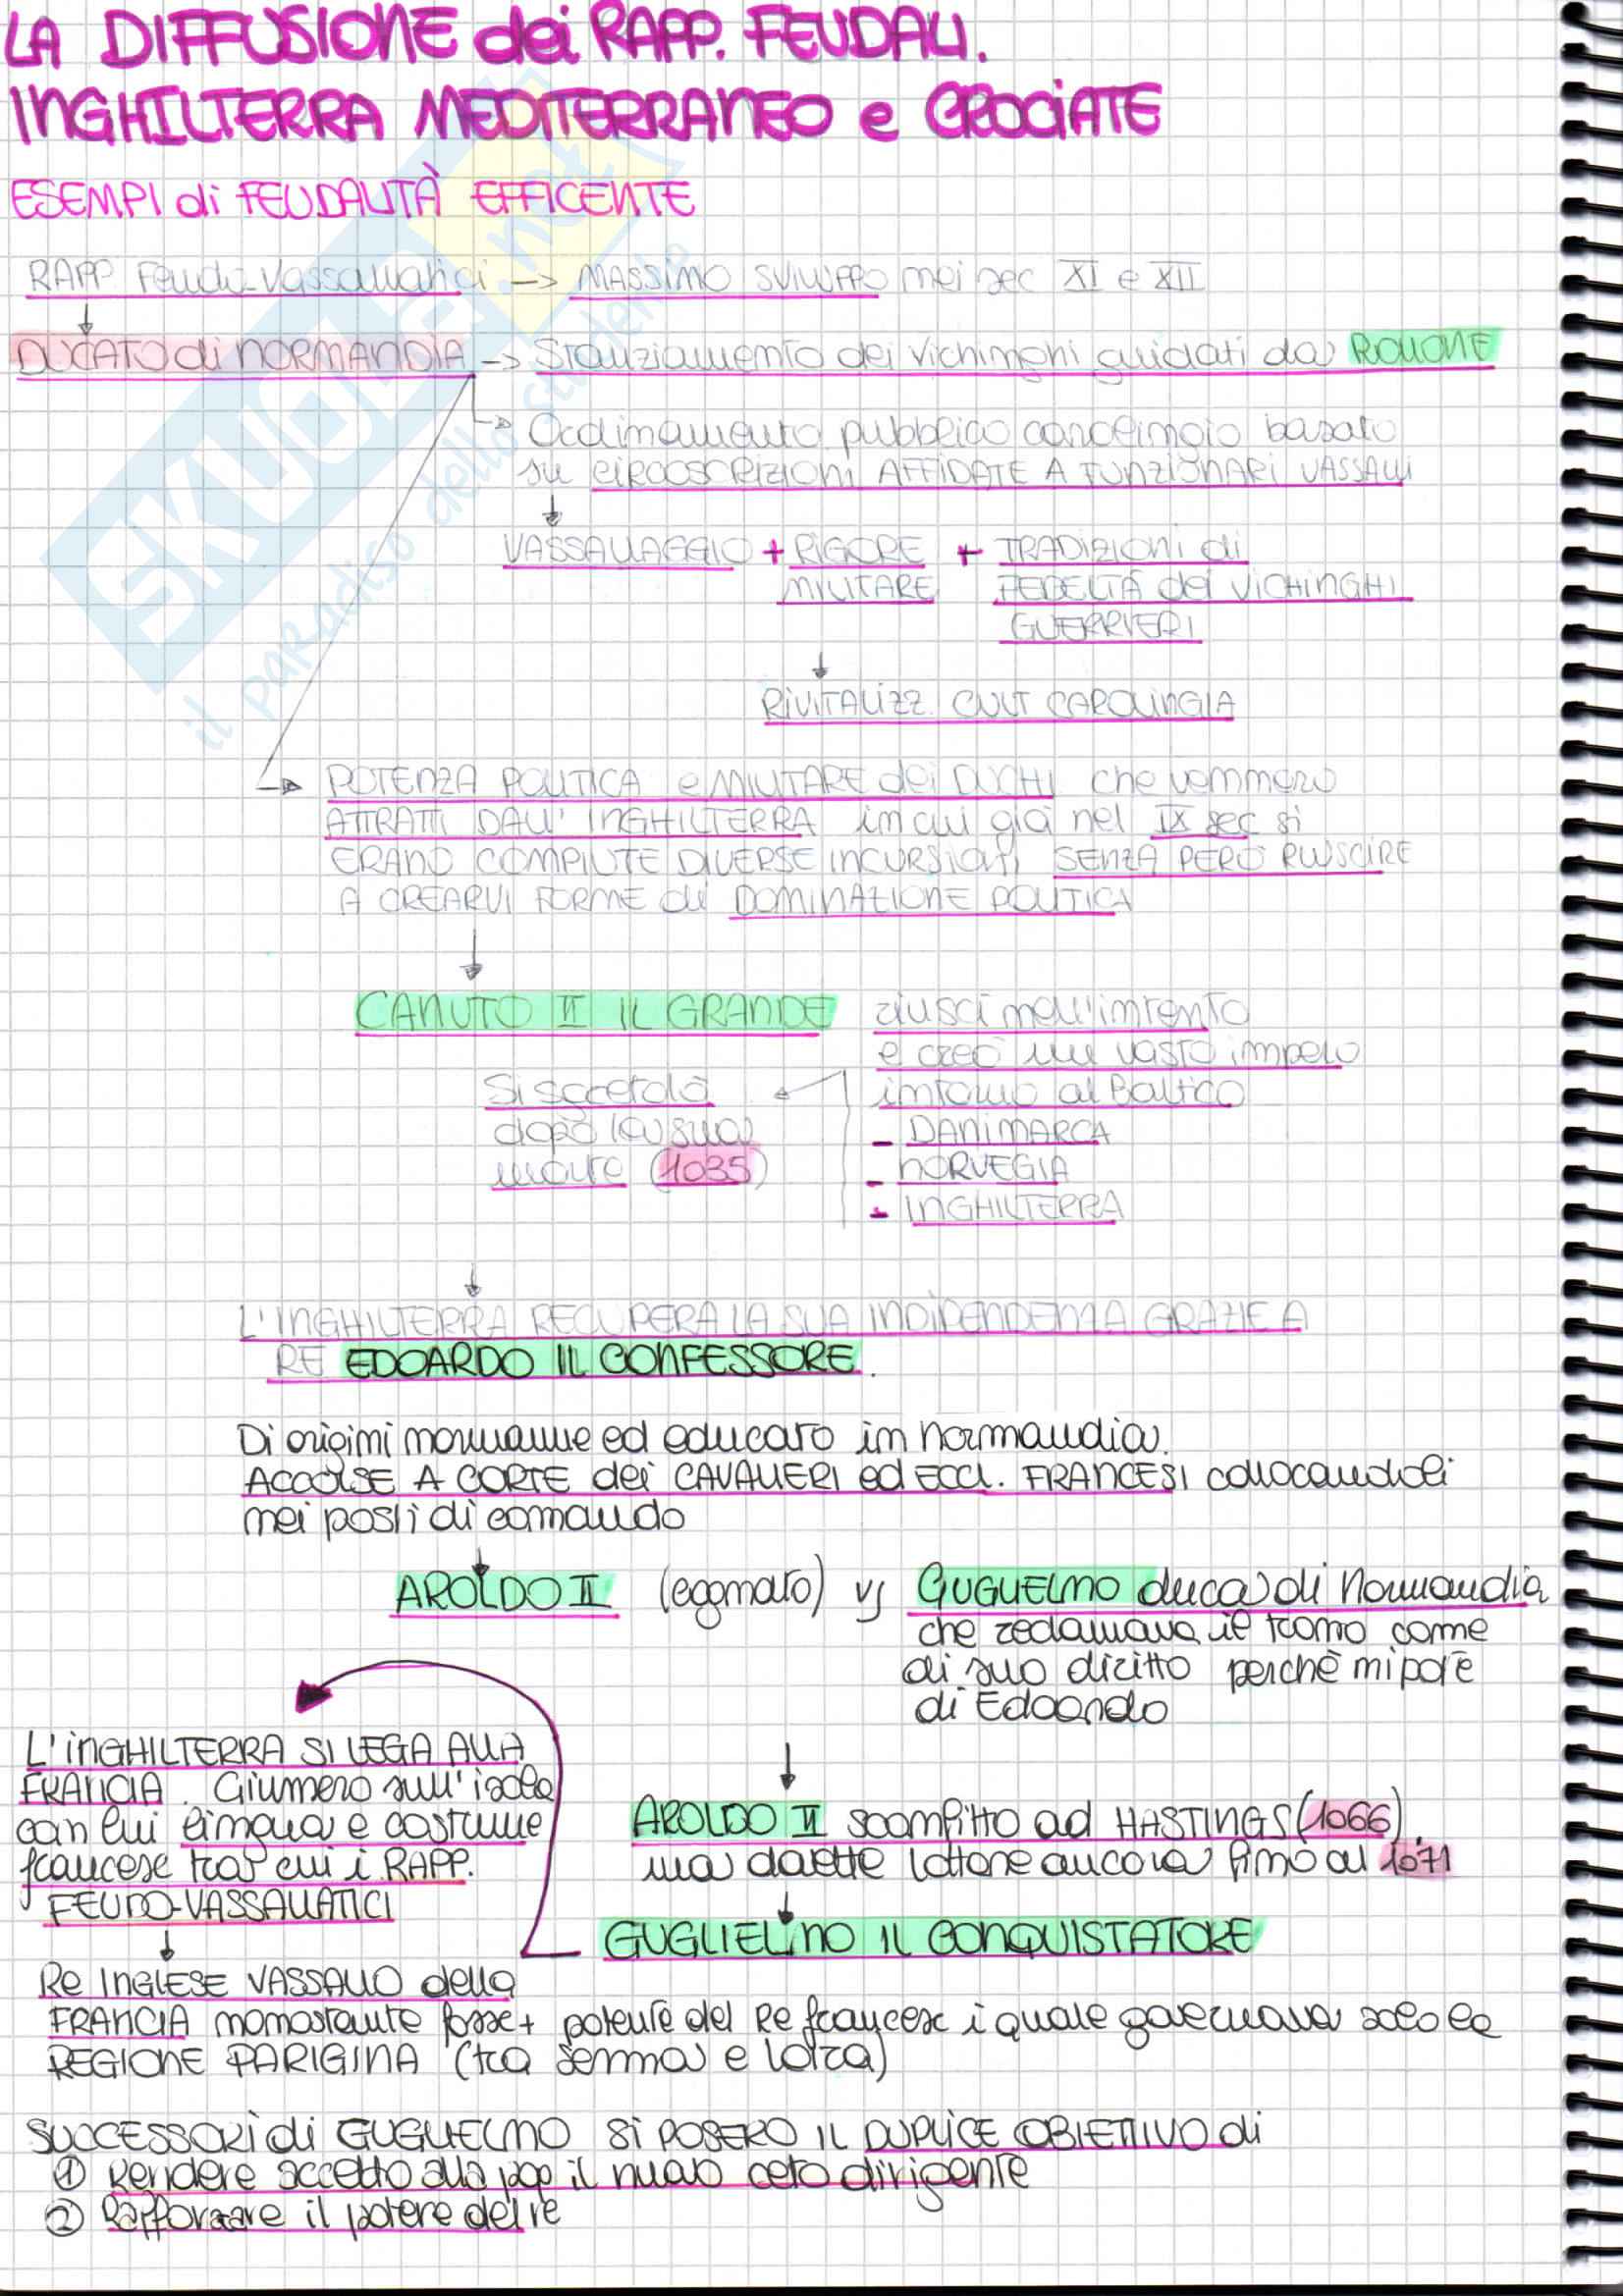 LA DIFFUSIONE dei RAPP. FEUDALI.
INGHILTERRA MEDITERRANEO e CROCIATE
ESEMPI di FEUDALITÀ EFFICENTE
RAPP. Feudo-Vassallatici -> MASSIMO SVILUPPO nei sec XI e XII
DUCATO di NORMANDIA -> Stanziamento dei Vichinghi guidati da ROLLONE
Ordinamento pubblico carolingio basato
su CIRCOSCRIZIONI AFFIDATE A FUNZIONARI VASSALLI
VASSALLAGGIO + RIGORE + TRADIZIONI di
MILITARE FEDELTÀ dei VICHINGHI
GUERRIERI
RIVITALIZZ. CULT CAROLINGIA
POTENZA POLITICA e MILITARE dei DUCHI che vennero
ATTRATTI DALL'INGHILTERRA in cui già nel IX sec si
ERANO COMPIUTE DIVERSE INCURSIONI SENZA PERÒ RIUSCIRE
A CREARVI FORME di DOMINAZIONE POLITICA
CANUTO II IL GRANDE riuscì nell'intento
e creò un vasto impero
Si sgretolò intorno al Baltico
dopo la sua - DANIMARCA
morte (1035) - NORVEGIA
- INGHILTERRA
L'INGHILTERRA RECUPERA LA SUA INDIPENDENZA GRAZIE A
RE EDOARDO IL CONFESSORE.
Di origini normanne ed educato in normandia.
ACCOLSE A CORTE dei CAVALIERI ed ECCL. FRANCESI collocandoli
nei posti di comando
AROLDO II (egomato) vs GUGLIELMO duca di Normandia
che reclamava il trono come
di suo diritto perchè nipote
di Edoardo
L'INGHILTERRA SI LEGA ALLA
FRANCIA. Giunsero sull'isola
con lui lingua e costume
francese tra cui i RAPP.
FEUDO-VASSALLATICI
AROLDO II sconfitto ad HASTINGS (1066)
ma dovette lottare ancora fino al 1071
GUGLIELMO IL CONQUISTATORE
Re INGLESE VASSALLO della
FRANCIA nonostante fosse + potente del Re francese i quale governava solo la
REGIONE PARIGINA (tra Senna e Loira)
SUCCESSORI di GUGLIELMO si POSERO IL DUPLICE OBIETTIVO di
① Rendere accetto alla pop il nuovo ceto dirigente
② Rafforzare il potere del re
SKUOLA.net
il paradiso dello studente